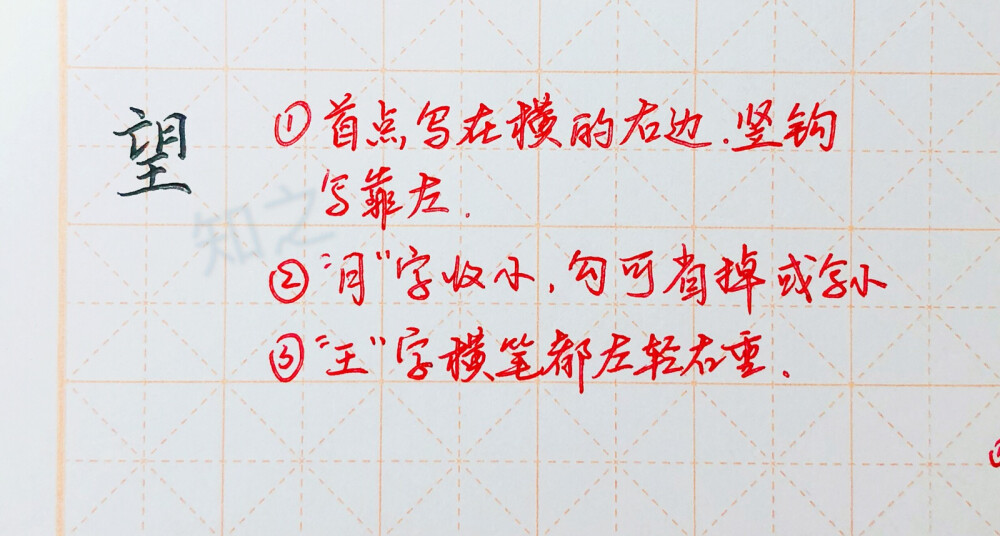 望
①首点写在横的右边.竖钩
写靠左.
②"月"字收小,勾可省掉或写小
③"王"字横笔都左轻右重.
知之